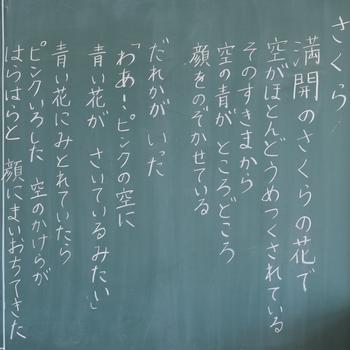 さくら
満開のさくらの花で
空がほとんどうめつくされている
そのすきまから
空の青が ところどころ
顔をのぞかせている
だれかが いった
「わあ！ピンクの空に
青い花が さいているみたい」
青い花にみとれていたら
ピンクいろした 空のかけらが
はらはらと 顔にまいおちてきた